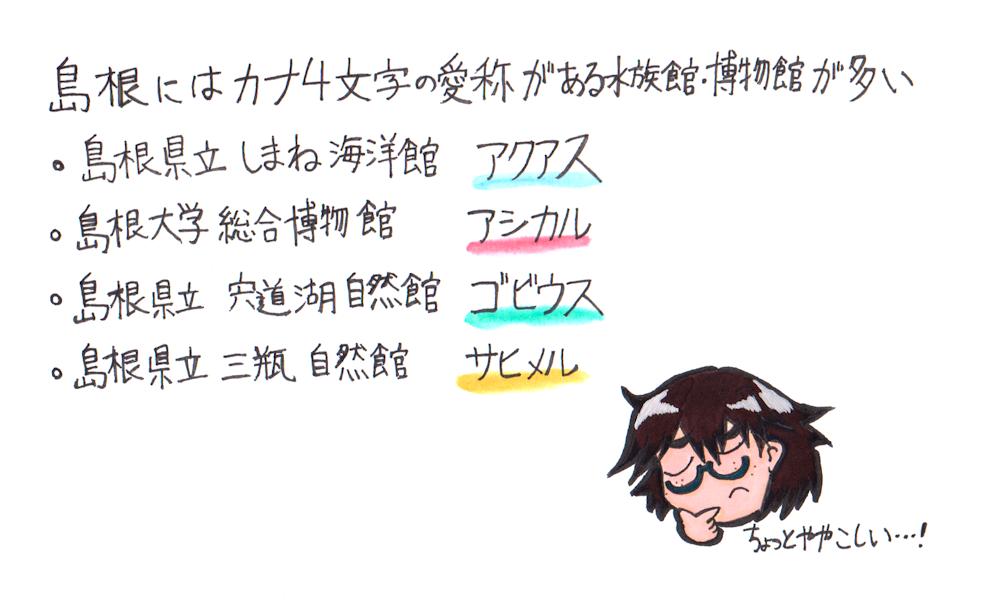 島根にはカナ4文字の愛称がある水族館・博物館が多い
• 島根県立しまね海洋館 アクアス
• 島根大学総合博物館 アシカル
• 島根県立 宍道湖自然館 ゴビウス
• 島根県立 三瓶 自然館 サヒメル
ちょっとややこしい…!